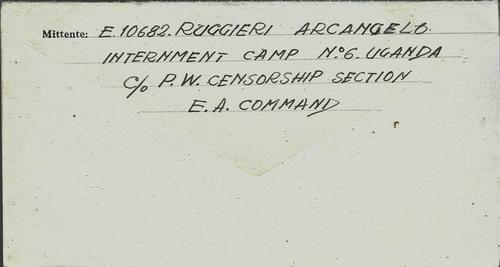 Mittente: E.10682. RUGGIERI ARCANGELO.
INTERNMENT CAMP N.º6. UGANDA
C/o P.W. CENSORSHIP SECTION
E.A. COMMAND